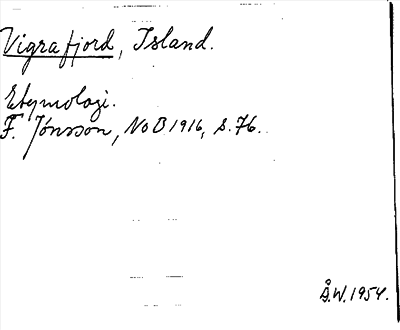 Vigrafjord, Island.
Etymologi.
F. Jónsson, NoB 1916, s. 76.
Å.W. 1954.